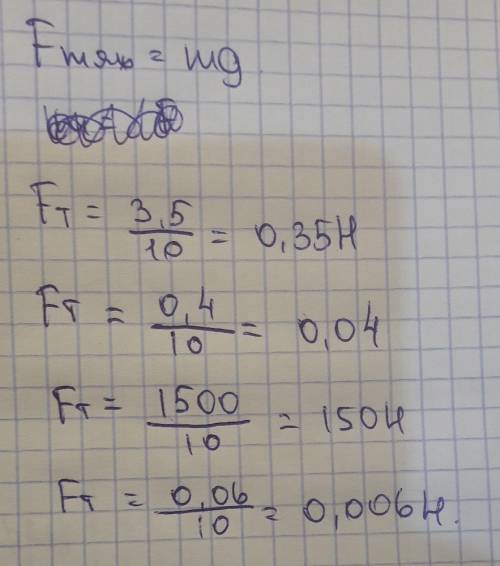 Fтяж = mg
Fт = 3,5/10 = 0,35Н
Fт = 0,4/10 = 0,04
Fт = 1500/10 = 150Н
Fт = 0,06/10 = 0,006Н.